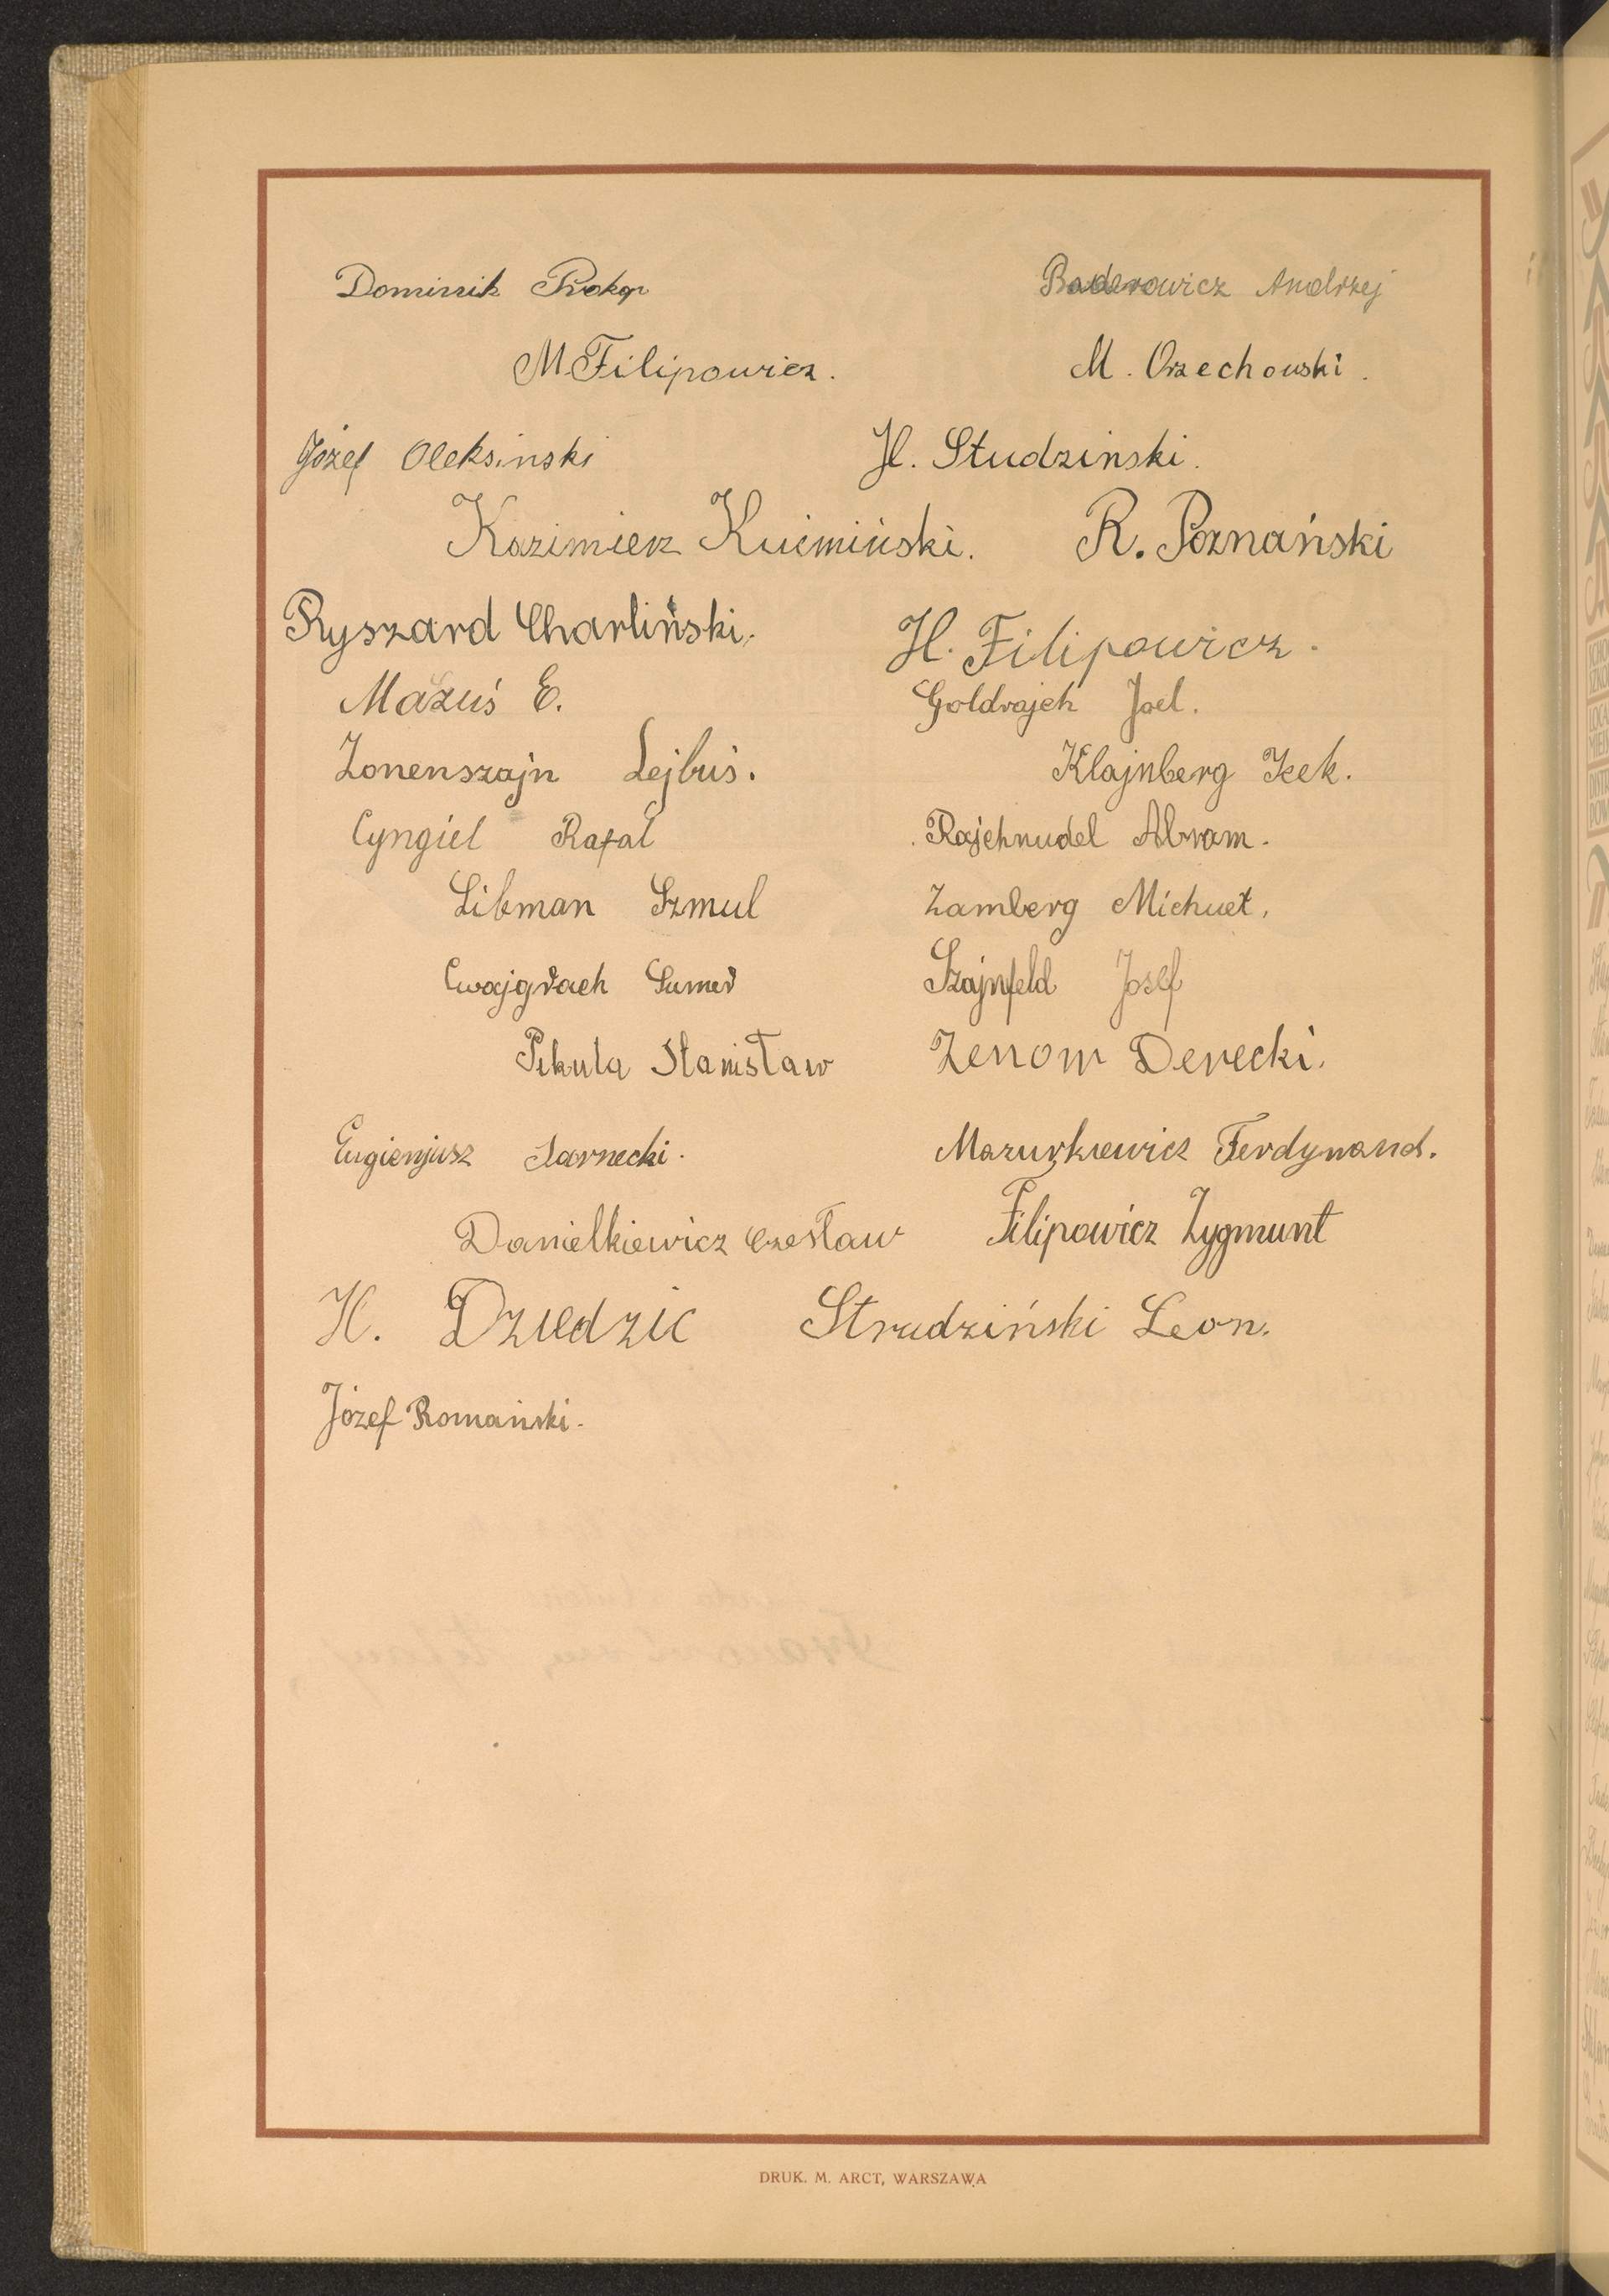 Dominik Prokop Baderowicz Andrzej
M. Filipowicz. M. Orzechowski.
Józef Oleksinski H. Studzinski.
Kazimierz R. Poznański
Ryszard Charliński. H. Filipowicz.
Mazuś E. Goldrajch Joel.
Zonenszajn Lejbuś. Klajnberg Icek.
Cyngiel Rafał Rajchnudel Abram.
Libman Szmul Zamberg
Cwajgrach Sumer Szajnfeld Josef
Pikula Stanisław Zenom Derecki.
Eugienjusz Sarnecki. Mazurkiewicz Ferdynand.
Danielkiewicz Czesław Filipowicz Zygmunt
H. Dziedzic Studziński Leon.
Józef Romański.
DRUK. M. ARCT, WARSZAWA